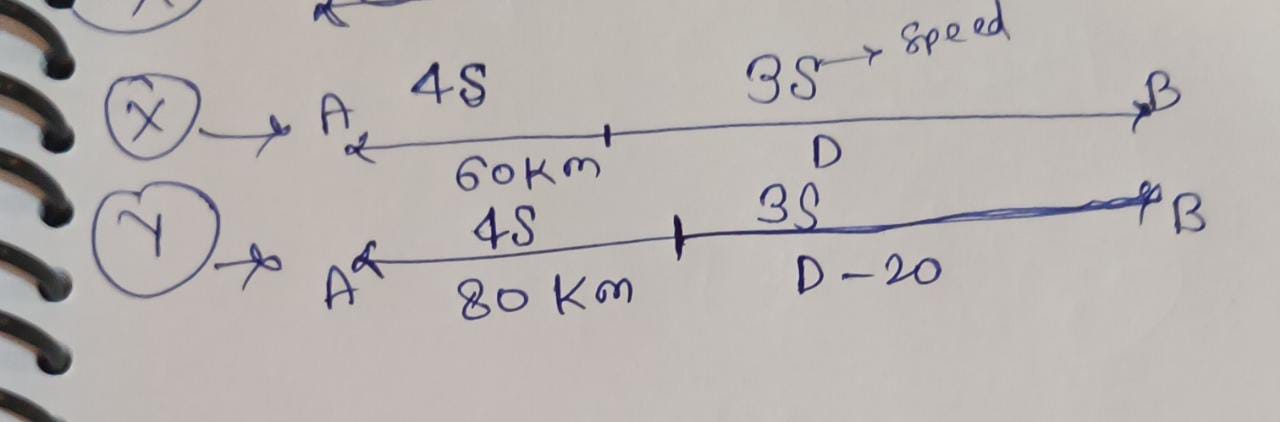 4S 3S → Speed
X → A B
60Km D
Y → 4S 3S B
A 80 Km D-20